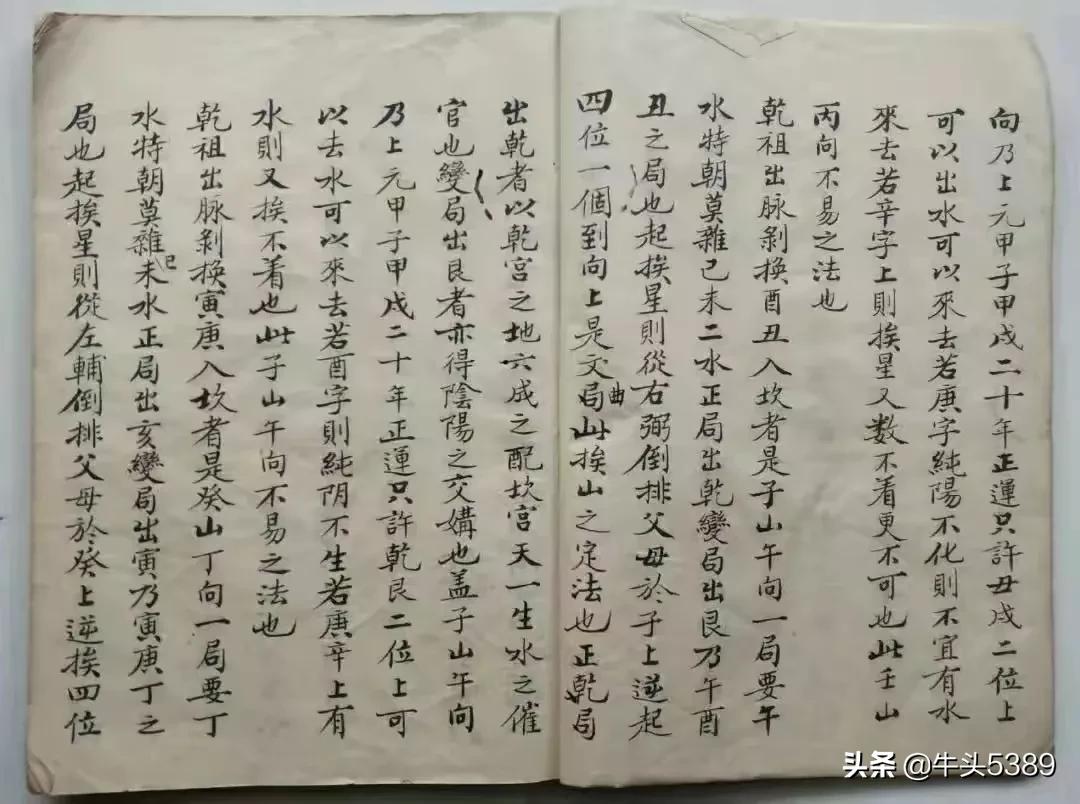 向乃上元甲子甲戌二十年正運只許丑戌二位上
可以出水可以來去若庚字純陽不化則不宜有水
來去若辛字上則挨星又数不着更不可也此壬山
丙向不易之法也
乾祖出脉剝換酉丑入坎者是子山午向一局要午
水特朝莫雜己未二水正局出乾變局出艮乃午酉
丑之局也起挨星則從右弼倒排父母於子上逆起
四位一個到向上是文曲局此挨山之定法也正乾局
出乾者以乾宮之地六成之配坎宮天一生水之催
官也變局出艮者亦得陰陽之交媾也盖子山午向
乃上元甲子甲戌二十年正運只許乾艮二位上可
以去水可以來去若酉字則純阴不生若庚辛上有
水則又挨不着也此子山午向不易之法也
乾祖出脉剝換寅庚入坎者是癸山丁向一局要丁
水特朝莫雜巳未水正局出亥變局出寅乃寅庚丁之
局也起挨星則從左輔倒排父母於癸上逆挨四位
头条 @牛头5389